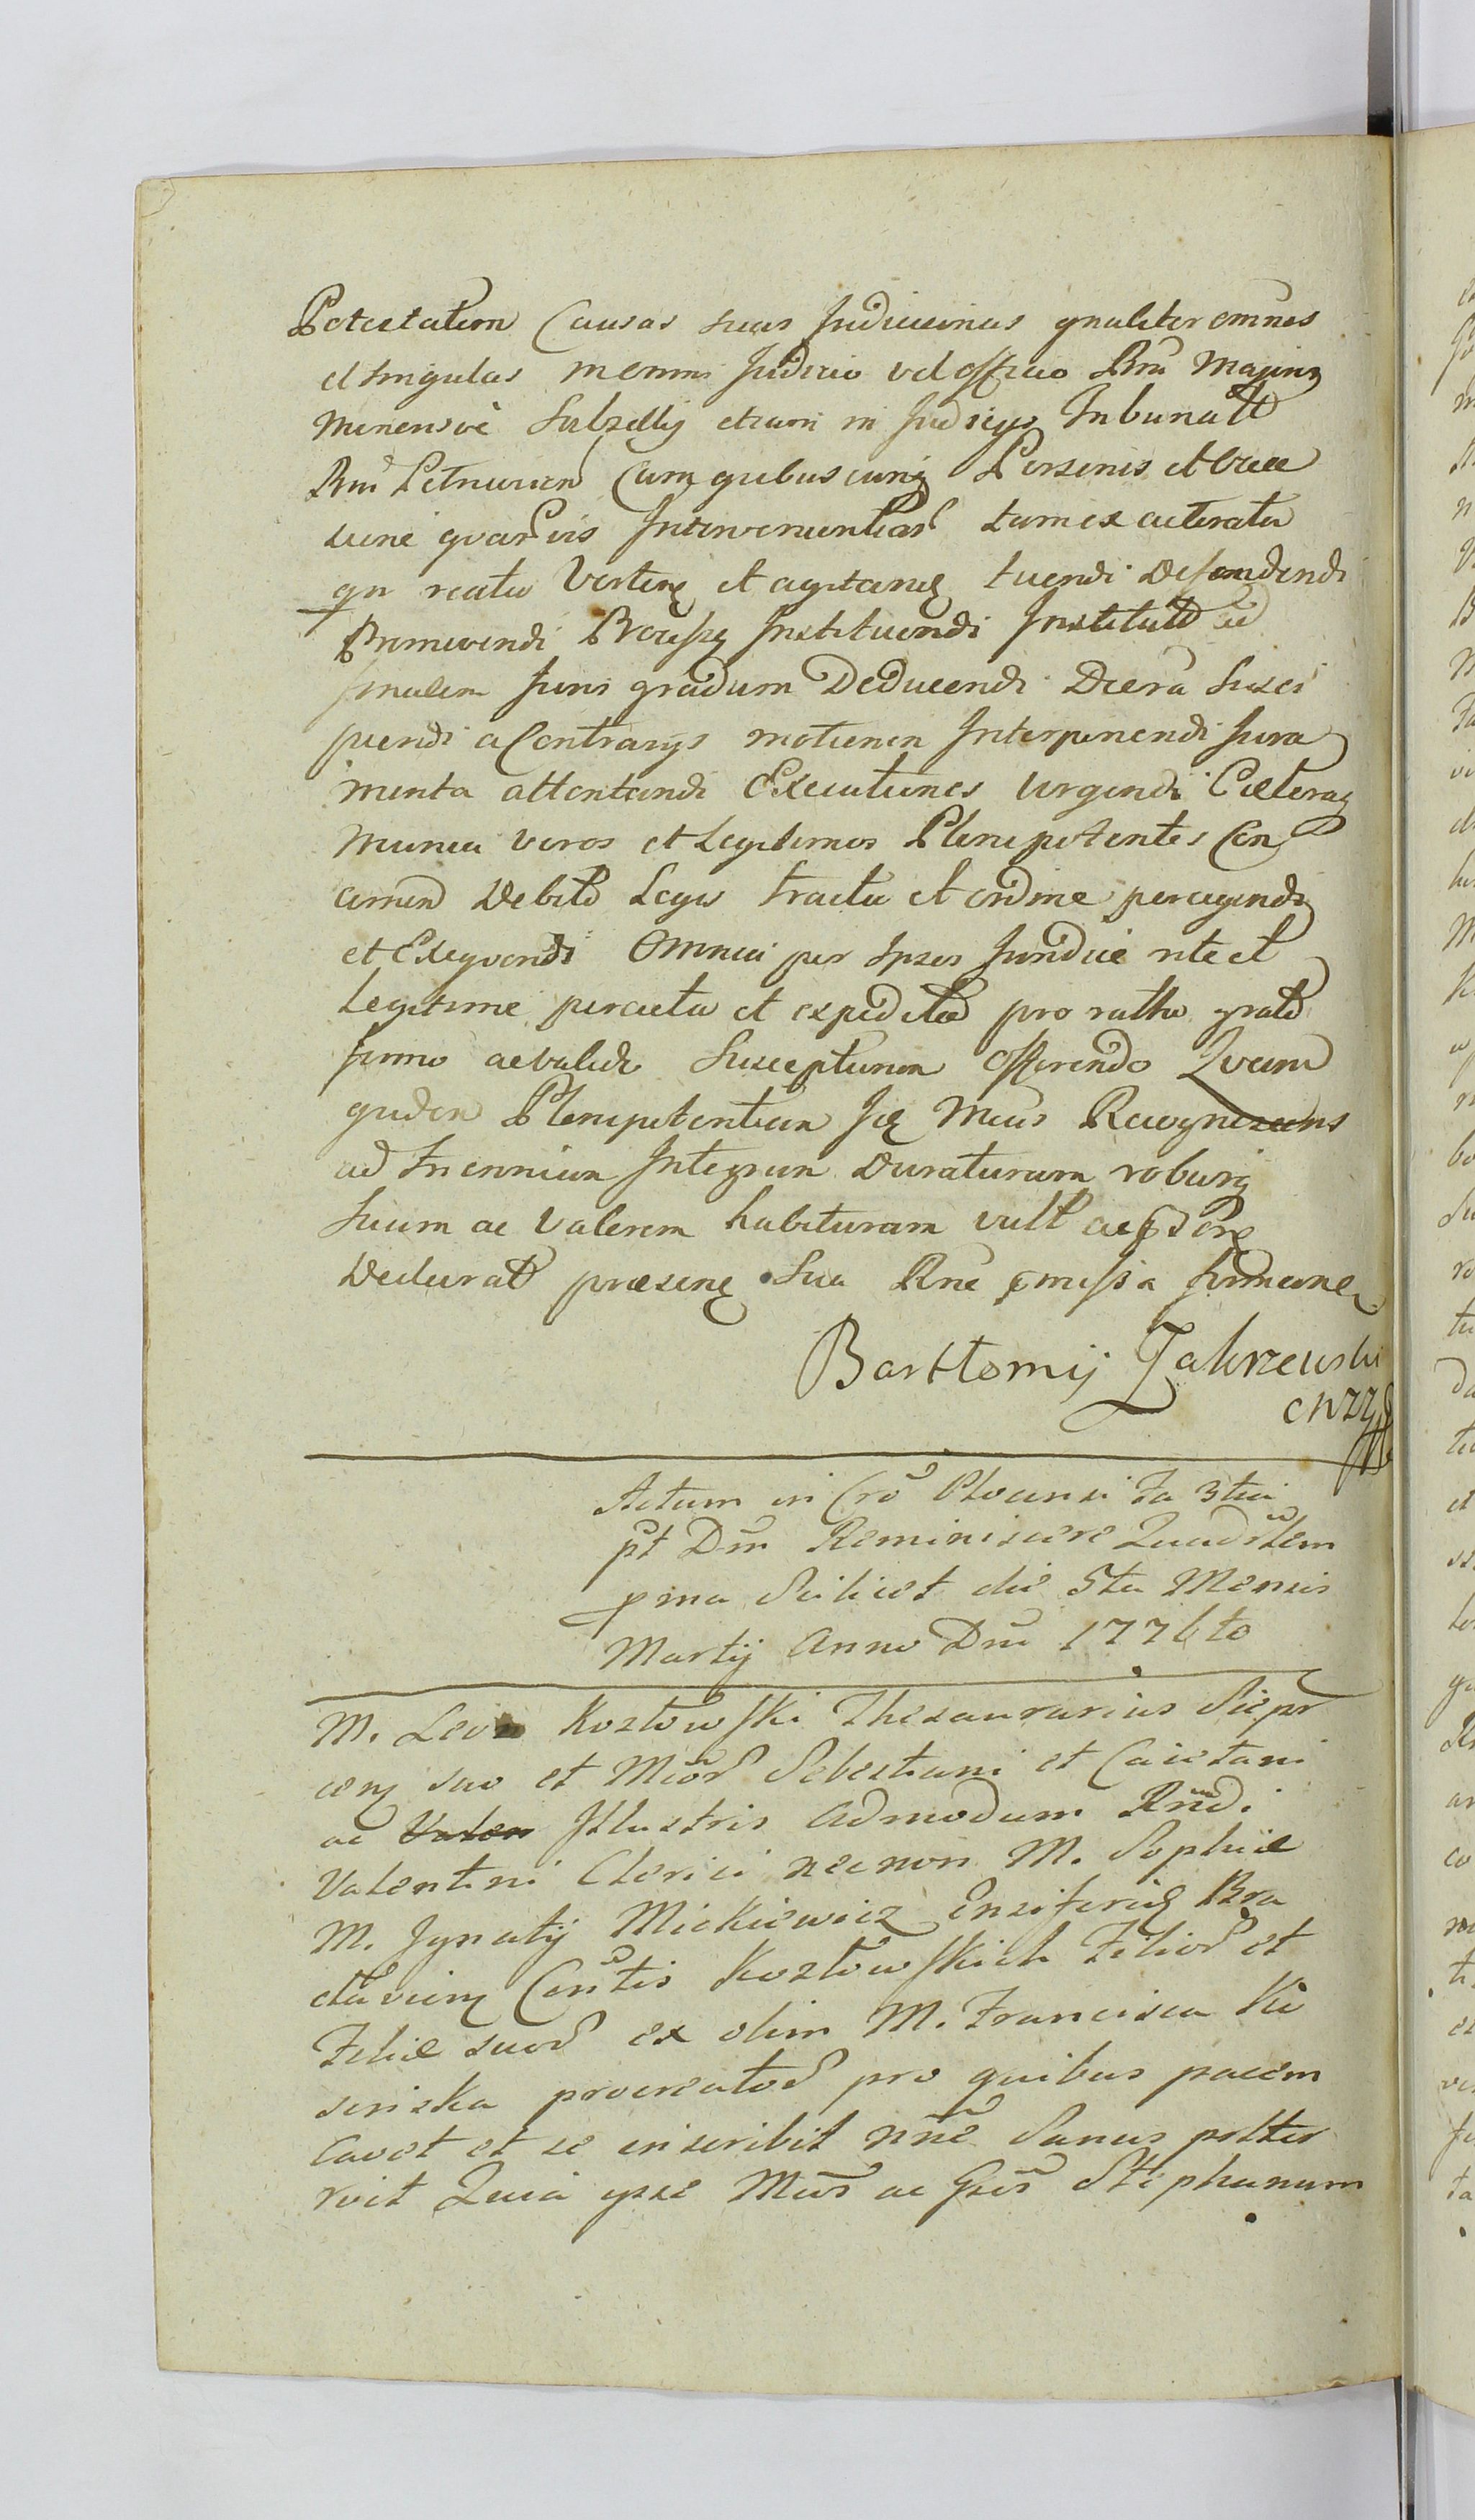 Potestatem Causas suas Judiciarias gnaliter omnes
et singulas in omni Judicio vel officio Rni Majoris
Minorisve Subsellij etiam in Judicijs Tribunalt
Rni Petricovien Cum quibuscunq Personis et
sive quarvis Intervenientiar tum ex citerata
qu reatu Verten et agitan tuendi Defendendi
Promovendi Processq Instituendi Institut ad
finalem Juris gradum Deducendi Decra Susci
piendi a Contrarijs motionem Interponendi Jura
menta attentandi Executiones Urgendi Caeteraq
munia veros et Legitimos Plenipotentes Con
cernen Debito Legis tractu et ordine peragendi
et Exequendi Omnia per Ipsos Juridice rite et
Legitime peracta et expedita pro ratho grato
firmo ac valido Suscepturum Offerendo Quam
quidem Plenipotentiam Recognizcens
ad Triennium Integrum Duraturam roburq
Suum ac Valorem habituram vult ac
Declarat praesen Sua Rne
Barttomij Zakrzewski
Actum in Cro Plocensi Fa 3tia
pt Dni Reminiscere Quadrlem
pma Scilicet die 5ta Mensis
Martij Anno Dni 1776to
M. Leon Kozłowski Thesaurarius Siepr
cens suo et Mcor Sebestiani et Caietani
ac Valen Jllustris Admodum Rndi
Valentini Clerici necnon M. Sophiæ
M. Jgnatij Mickiewicz Ensiferid Bra
claviens Contis Kozłowskich Filior et
Filiæ suor ex olim M. Francisca Ki
sinska procreator pro quibus pacem
Cavet et se inscribit nne Sanus poltter
roit Quia ipse Mcus ac Gsos Stephanum